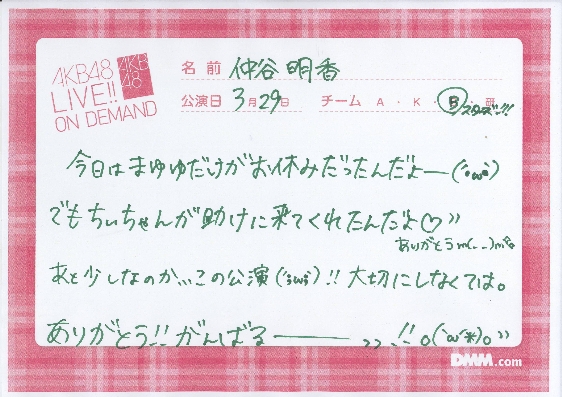 AKB48
LIVE!!
ON DEMAND
AKB
48
名前 仲谷明香
公演日 3月29日 チーム A・K・B・研
スターズ!!!
今日はまゆゆだけがお休みだったんだよー(´;ω;`)
でもちぃちゃんが助けに来てくれたんだよ♡〃
ありがとうm(_ _)m
あと少しなのか、、、この公演(´;ω;`)!! 大切にしなくては。
ありがとう!! がんばるー 、、!! o(`ω´*)o〃
DMM.com